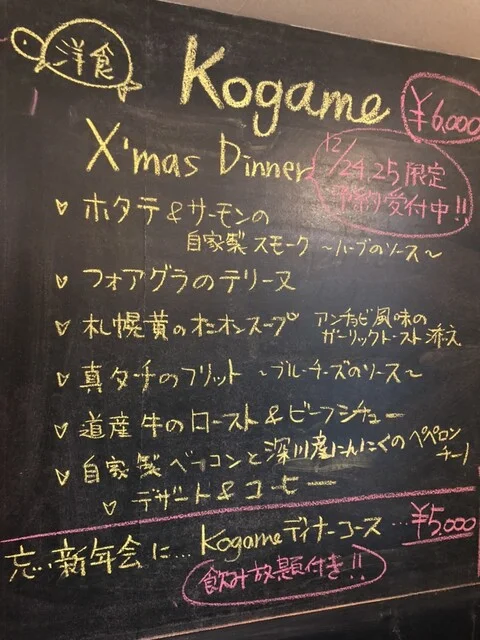 洋食
Kogame
¥6,000
X'mas Dinner
12/24.25限定
予約受付中!!
ホタテ&サーモンの
自家製スモーク ~ハーブのソース~
フォアグラのテリーヌ
札幌黄のオニオンスープ アンチョビ風味の
ガーリックトースト添え
真ダチのフリット ~ブルーチーズのソース~
道産牛のロースト&ビーフシチュー
自家製ベーコンと深川産にんにくのペペロン
チーノ
デザート&コーヒー
忘・新年会に... Kogameディナーコース...¥5,000
飲み放題付き!!